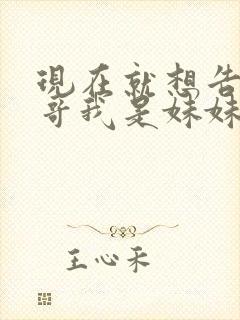 現在就想告
哥我是妹妹
王心禾